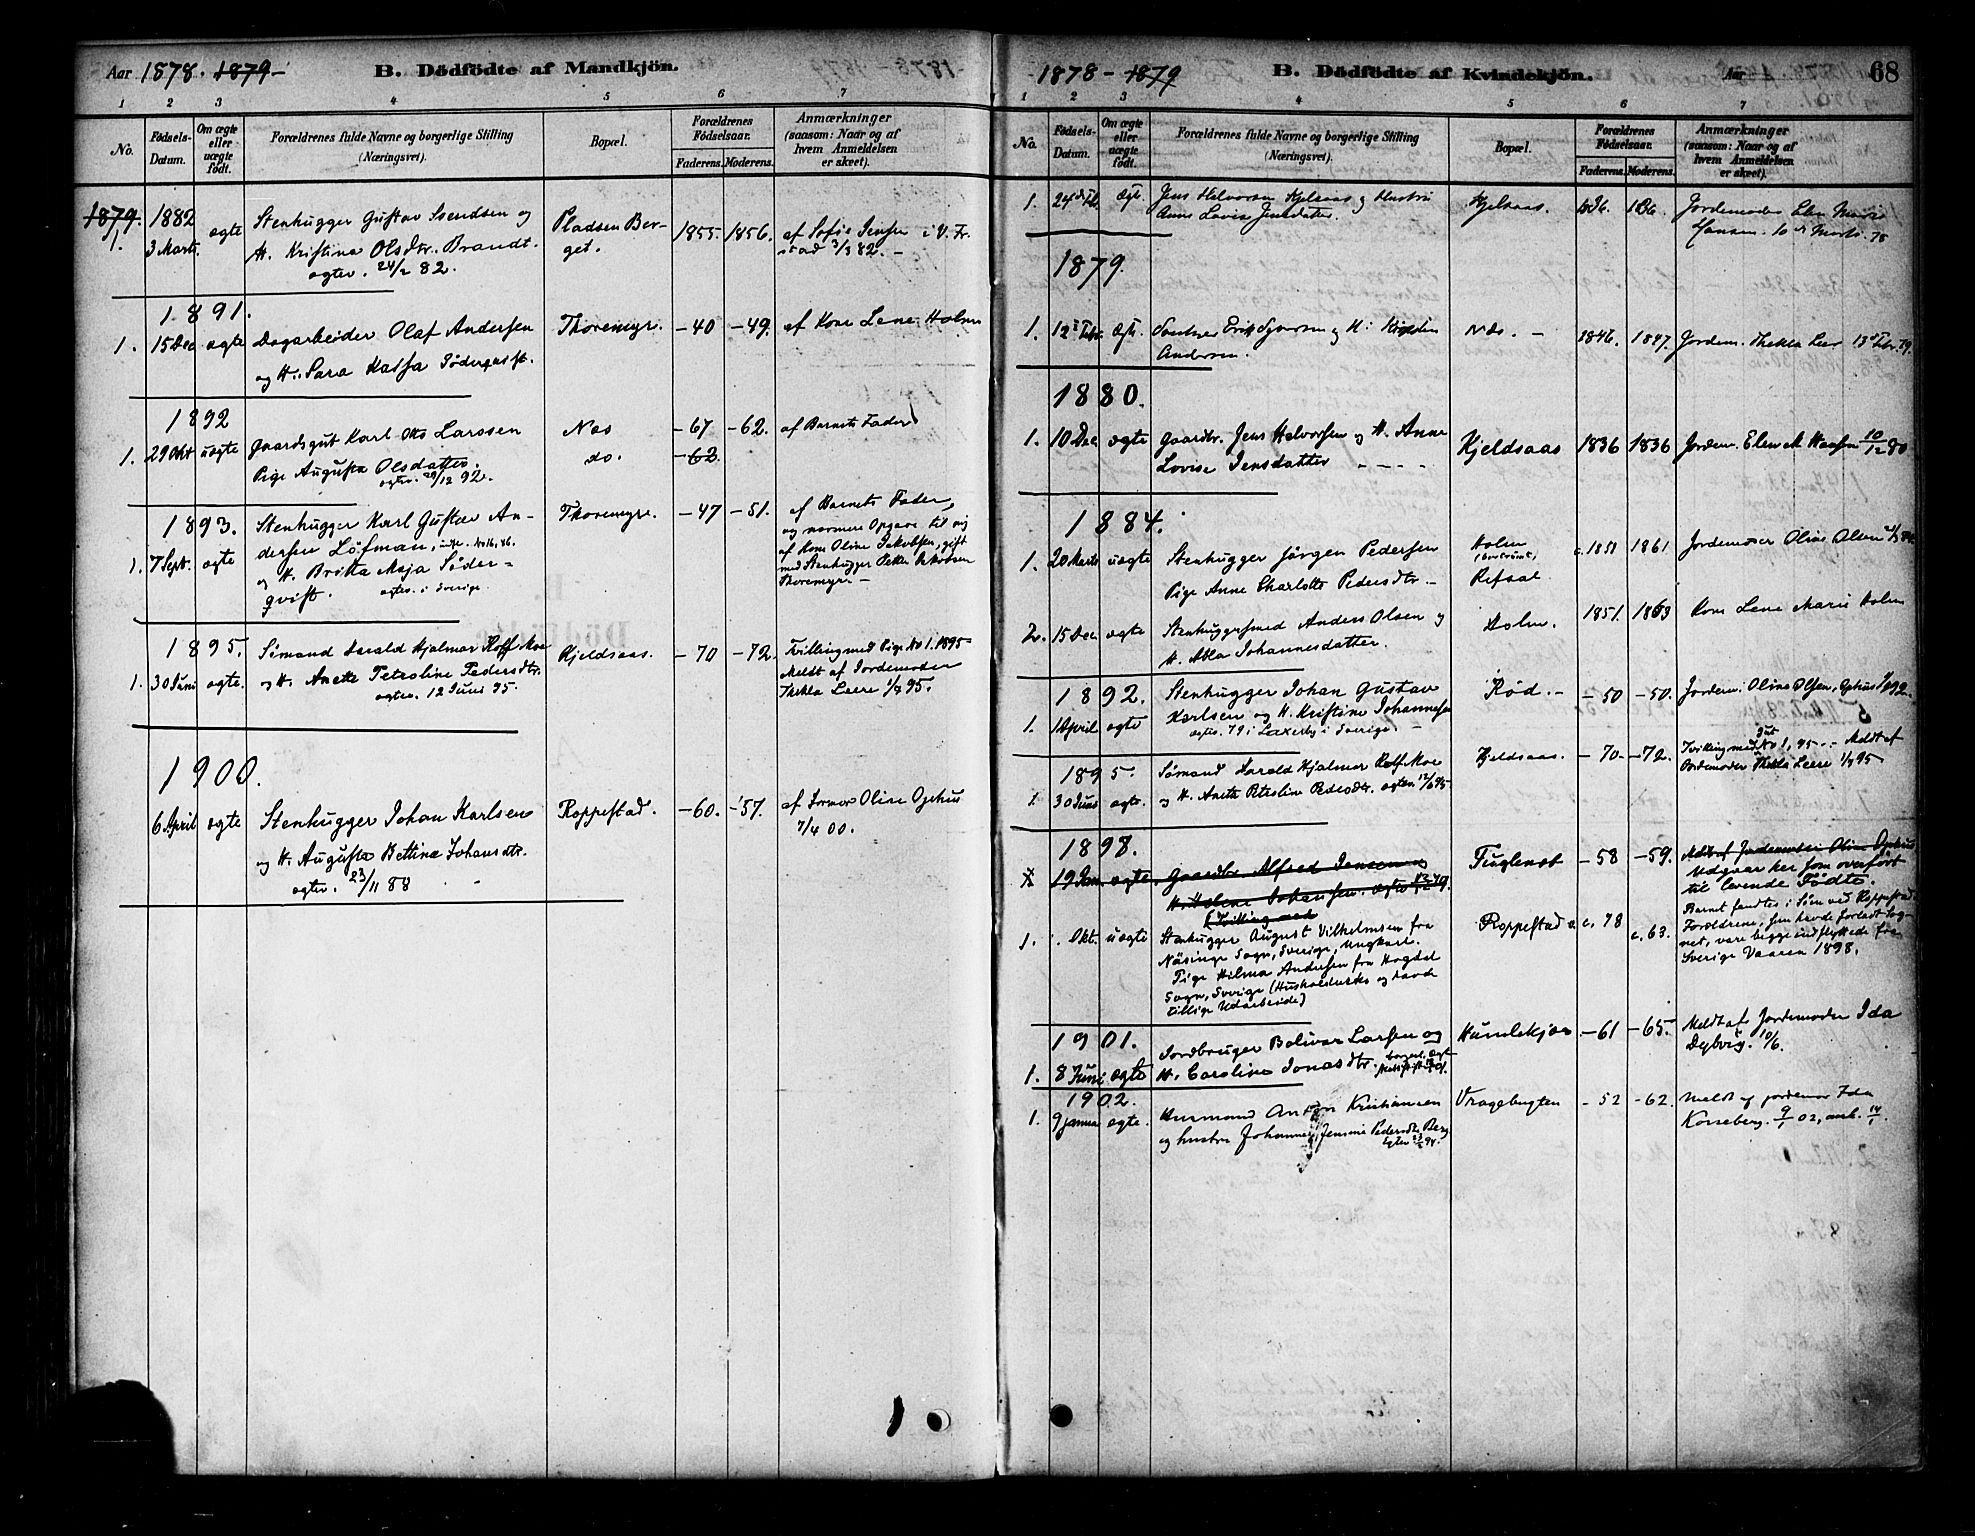 Aar 1878. 1879 -
B. Dödfödte af Mandkjön.
1 2 3 4 5 6 7
No.
Födsels-Datum.
Om ægte eller uægte födt.
Forældrenes fulde Navne og borgerlige Stilling (Næringsvei).
Bopæl.
Forældrenes Födselsaar.
Faderens. Moderens.
Anmærkninger (saasom: Naar og af hvem Anmeldelsen er skeet).
1879. 1882
1. 3 Marts. ægte Stenhugger Gustav Svendsen og Pladsen Ber- 1855. 1856. af Sofie Jensen i V. Fr.
H. Kristine Olsdtr. Brandt. get. stad 3/3 82. -
ægtev. 24/2 82.
1891.
1. 15 Dec ægte Dagarbeider Olaf Andersen Thoremyr. -40 -49. af Kone Lene Holm
og H. Sara Kasja Södergvist.
1892
1. 29 Okt uægte Gaardsgut Karl Otto Larssen Næs -67 -62. af Barnets Fader
Pige Augusta Olsdatter. do. -62
ægtev. 29/12 92.
1893.
1. 7 Sept. ægte Stenhugger Karl Gustav An- Thoremyr. -47 -51. af Barnets Fader,
dersen Löfman, og nærmere Opgave til mig
og H. Britta Maja Söder- af Kone Oline Jakobsen, gift
qvist. ægtev. i Sverige. med Stenhugger Petter Jakobsen
Thoremyr. -
1895.
1. 30 Juni ægte. Sömand Harald Hjalmar Rolfsen Moe Kjeldsaas. -70 -72. Tvilling med Pige No 1. 1895
og H. Anette Petroline Pedersdtr. Meldt af Jordemoder
ægtev. 12 Juni 95. Thekla Leere 1/7 95.
1900.
6 April ægte Stenhugger Johan Karlsen Roppestad. -60. -'57. af Jormor Oline Ophus
og H. Augusta Bettine Johansdtr. 7/4 00.
ægtev. 23/11 88
1878 - 1879
B. Dödfödte af Kvindekjön.
Aar
68
1 2 3 4 5 6 7
No.
Födsels-Datum.
Om ægte eller uægte födt.
Forældrenes fulde Navne og borgerlige Stilling (Næringsvei).
Bopæl.
Forældrenes Födselsaar.
Faderens. Moderens.
Anmærkninger (saasom: Naar og af hvem Anmeldelsen er skeet).
1. 24 Feb. Ægt. Jens Halvorsen Kjelsaas og Hustru Kjelsaas. 1836. 1836. Jordemoder Elen Marie
Anne Lovise Jensdatter. Hansen. 10 Marts. 78
1879.
1. 12 Febr. Ægt. Erik Syversen og H: Kirstine Næs. - 1846. 1847. Jordem. Thekla Leer 13 Febr. 79.
Andersen.
1880.
1. 10 Dec. ægte Gaardbr. Jens Halvorsen og H. Anne Kjeldsaas 1836 1836 Jordem. Elen M. Hansen 10/12 80
Lovise Jensdatter
1884.
1. 20 Marts uægte Stenhugger Jörgen Pedersen Holm c. 1851 1861 Jordemoder Oline Olsen
Pige Anne Charlotte Pedersdtr. - Refsal.
2. 15 Dec. ægte Stenhuggersmed Anders Olsen og Holm. 1851. 1853 Kone Lene Marie Holm
H. Abla Johannesdatter.
1892.
1. 1 April ægte Stenhugger Johan Gustav Röd. - -50 -50. Jordem. Oline Olsen, Ophus
Karlsen og H. Kristine Johannesen
ægtev. 79 i Laxerby i Sverige. -
1895.
1. 30 Juni ægte. Sömand Harald Hjalmar Rolfs. Moe Kjeldsaas. -70 -72. Tvilling med Gut No 1, 95. - Meldt af
og H. Anette Petroline Pedersdtr. ægtev. 12/6 95 Jordemoder Thekla Leere 1/7 95
1898.
1. 19 Jan. ægte. Gaardbr Alfred Jensen og Fuglenæb -58 -59. Meldt af Jordemoder Oline Ophus
H. Helene Johansen. ægtev Udgaar her som overfört
(Tvilling med til levende Födte.
1. Okt. uægte Stenhugger August Vilhelmsen fra Roppestad c. 78 c. 63. Barnet fandtes i Söen ved Roppestad.
Näsinge Sogn, Sverige, Ungkarl. Forældrene, som havde forladt Sog-
Pige Hilma Andersen fra Hogdal net, vare begge indflyttede fra
Sogn, Sverige (Husholderske og havde Sverige Vaaren 1898.
tillige Udarbeide)
1901.
1. 8 Juni ægte Jordbruger Bolivar Larsen og Humlekjær -61 -65. Meldt af Jordemoder Ida
H. Caroline Jonasdtr. Dybvig. 10/6.
1902.
1. 9 Januar ægte. Husmand Anton Kristiansen Vragebugten -52 -62. Meldt af Jordemor Ida
og hustru Johanne Jensine Pedersdtr. Berg Korseberg. 9/1 02, anb. 14/1.